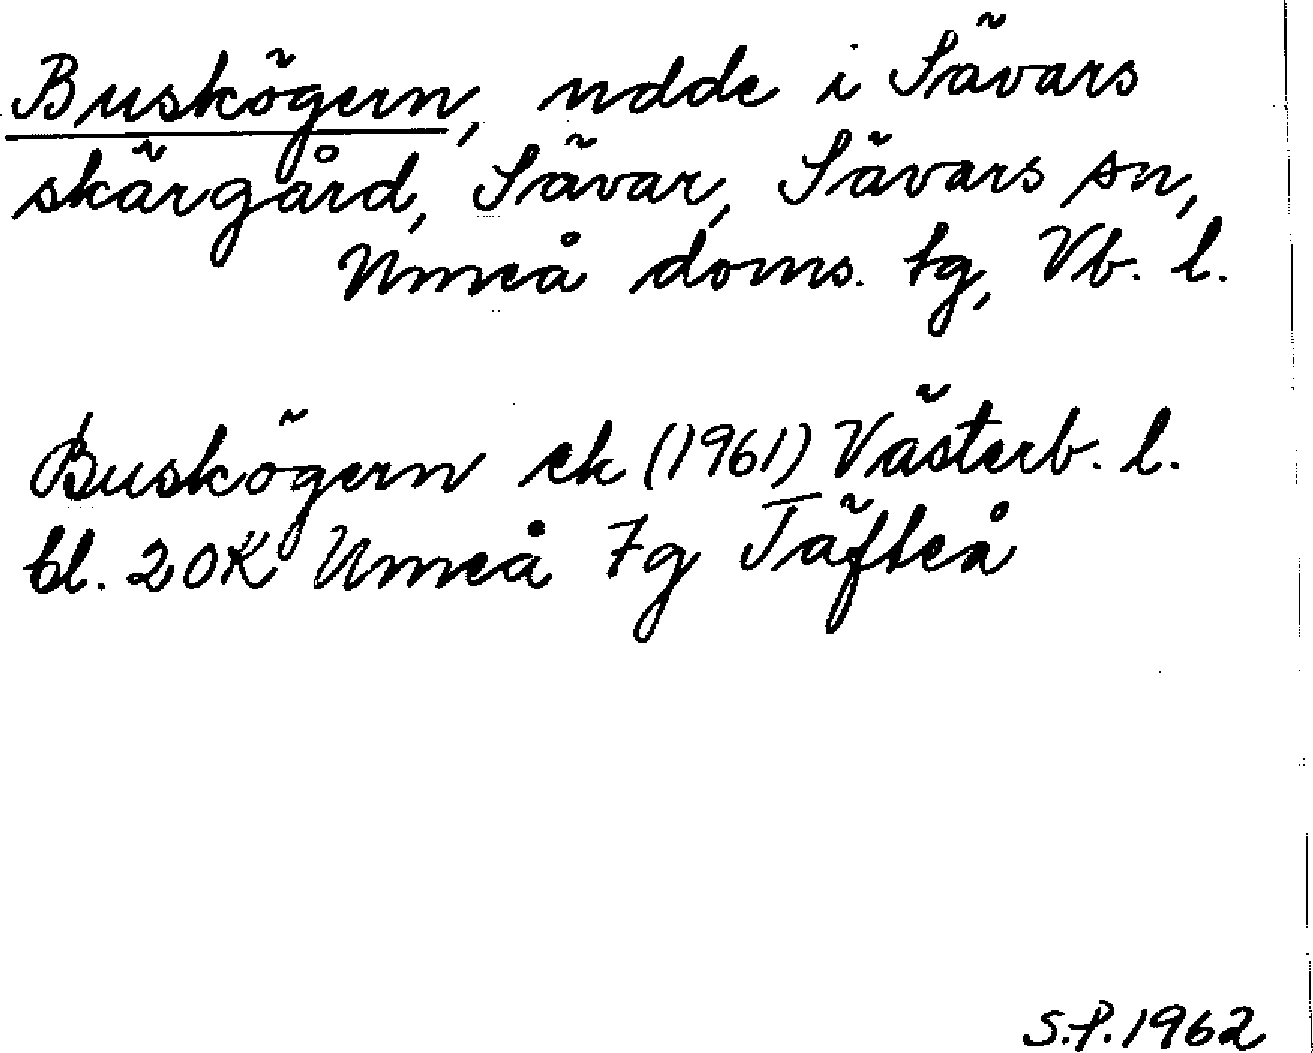 Buskögern, udde i Sävars
skärgård, Sävar, Sävars sn,
Umeå doms. tg, Vb. l.
Buskögern ek (1961) Västerb. l.
bl. 20K Umeå 7g Täfteå
S.P. 1962